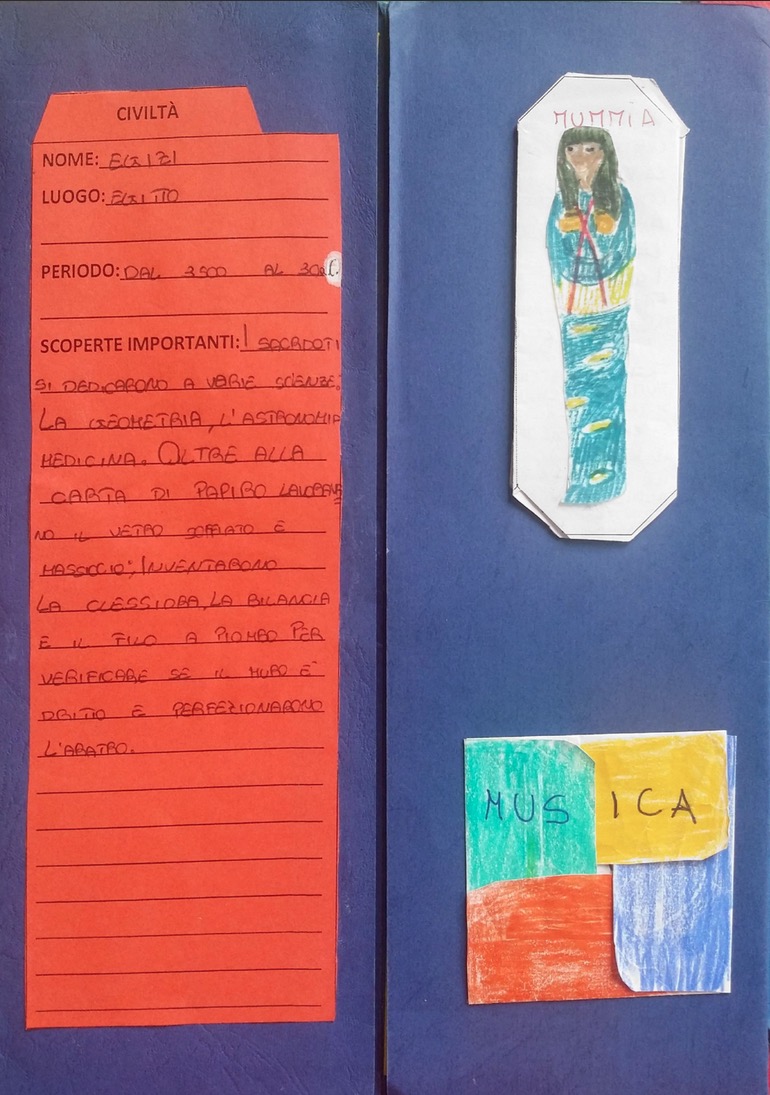 CIVILTÀ
NOME: EGIZI
LUOGO: EGITTO
PERIODO: DAL 3500 AL 30a.C.
SCOPERTE IMPORTANTI: I SACRDOTI
SI DEDICARONO A VARIE SCIENZE:
LA GEOMETRIA, L'ASTRONOMIA
MEDICINA. OLTRE ALLA
CARTA DI PAPIRO LAVORAVA
NO IL VETRO SOFFIATO E
MASSICCIO; INVENTARONO
LA CLESSIDRA, LA BILANCIA
E IL FILO A PIOMBO PER
VERIFICARE SE IL MURO E'
DRITTO E PERFEZIONARONO
L'ARATRO.
MUMMIA
MUSICA